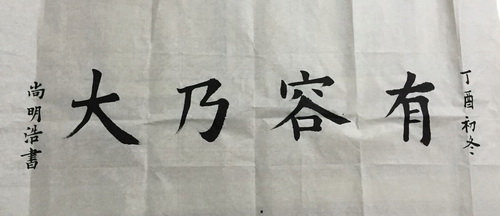 丁酉初冬
有容乃大
尚明浩書